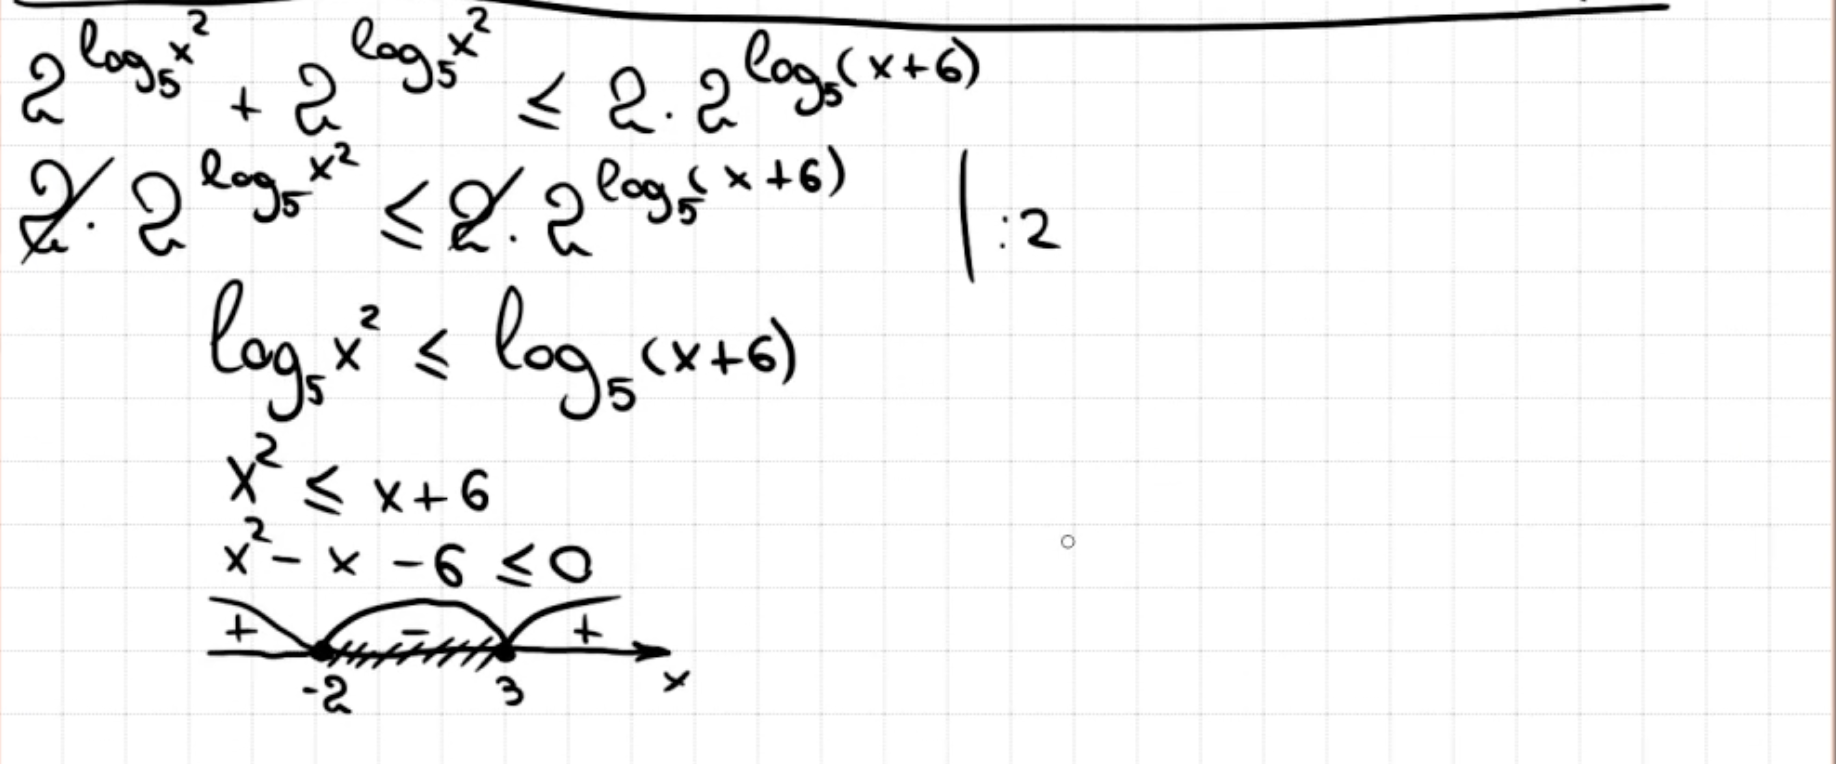 2^{log₅x²} + 2^{log₅x²} ≤ 2 · 2^{log₅(x+6)}
2 · 2^{log₅x²} ≤ 2 · 2^{log₅(x+6)} | :2
log₅x² ≤ log₅(x+6)
x² ≤ x+6
x² - x - 6 ≤ 0
+ - +
-2 3 x